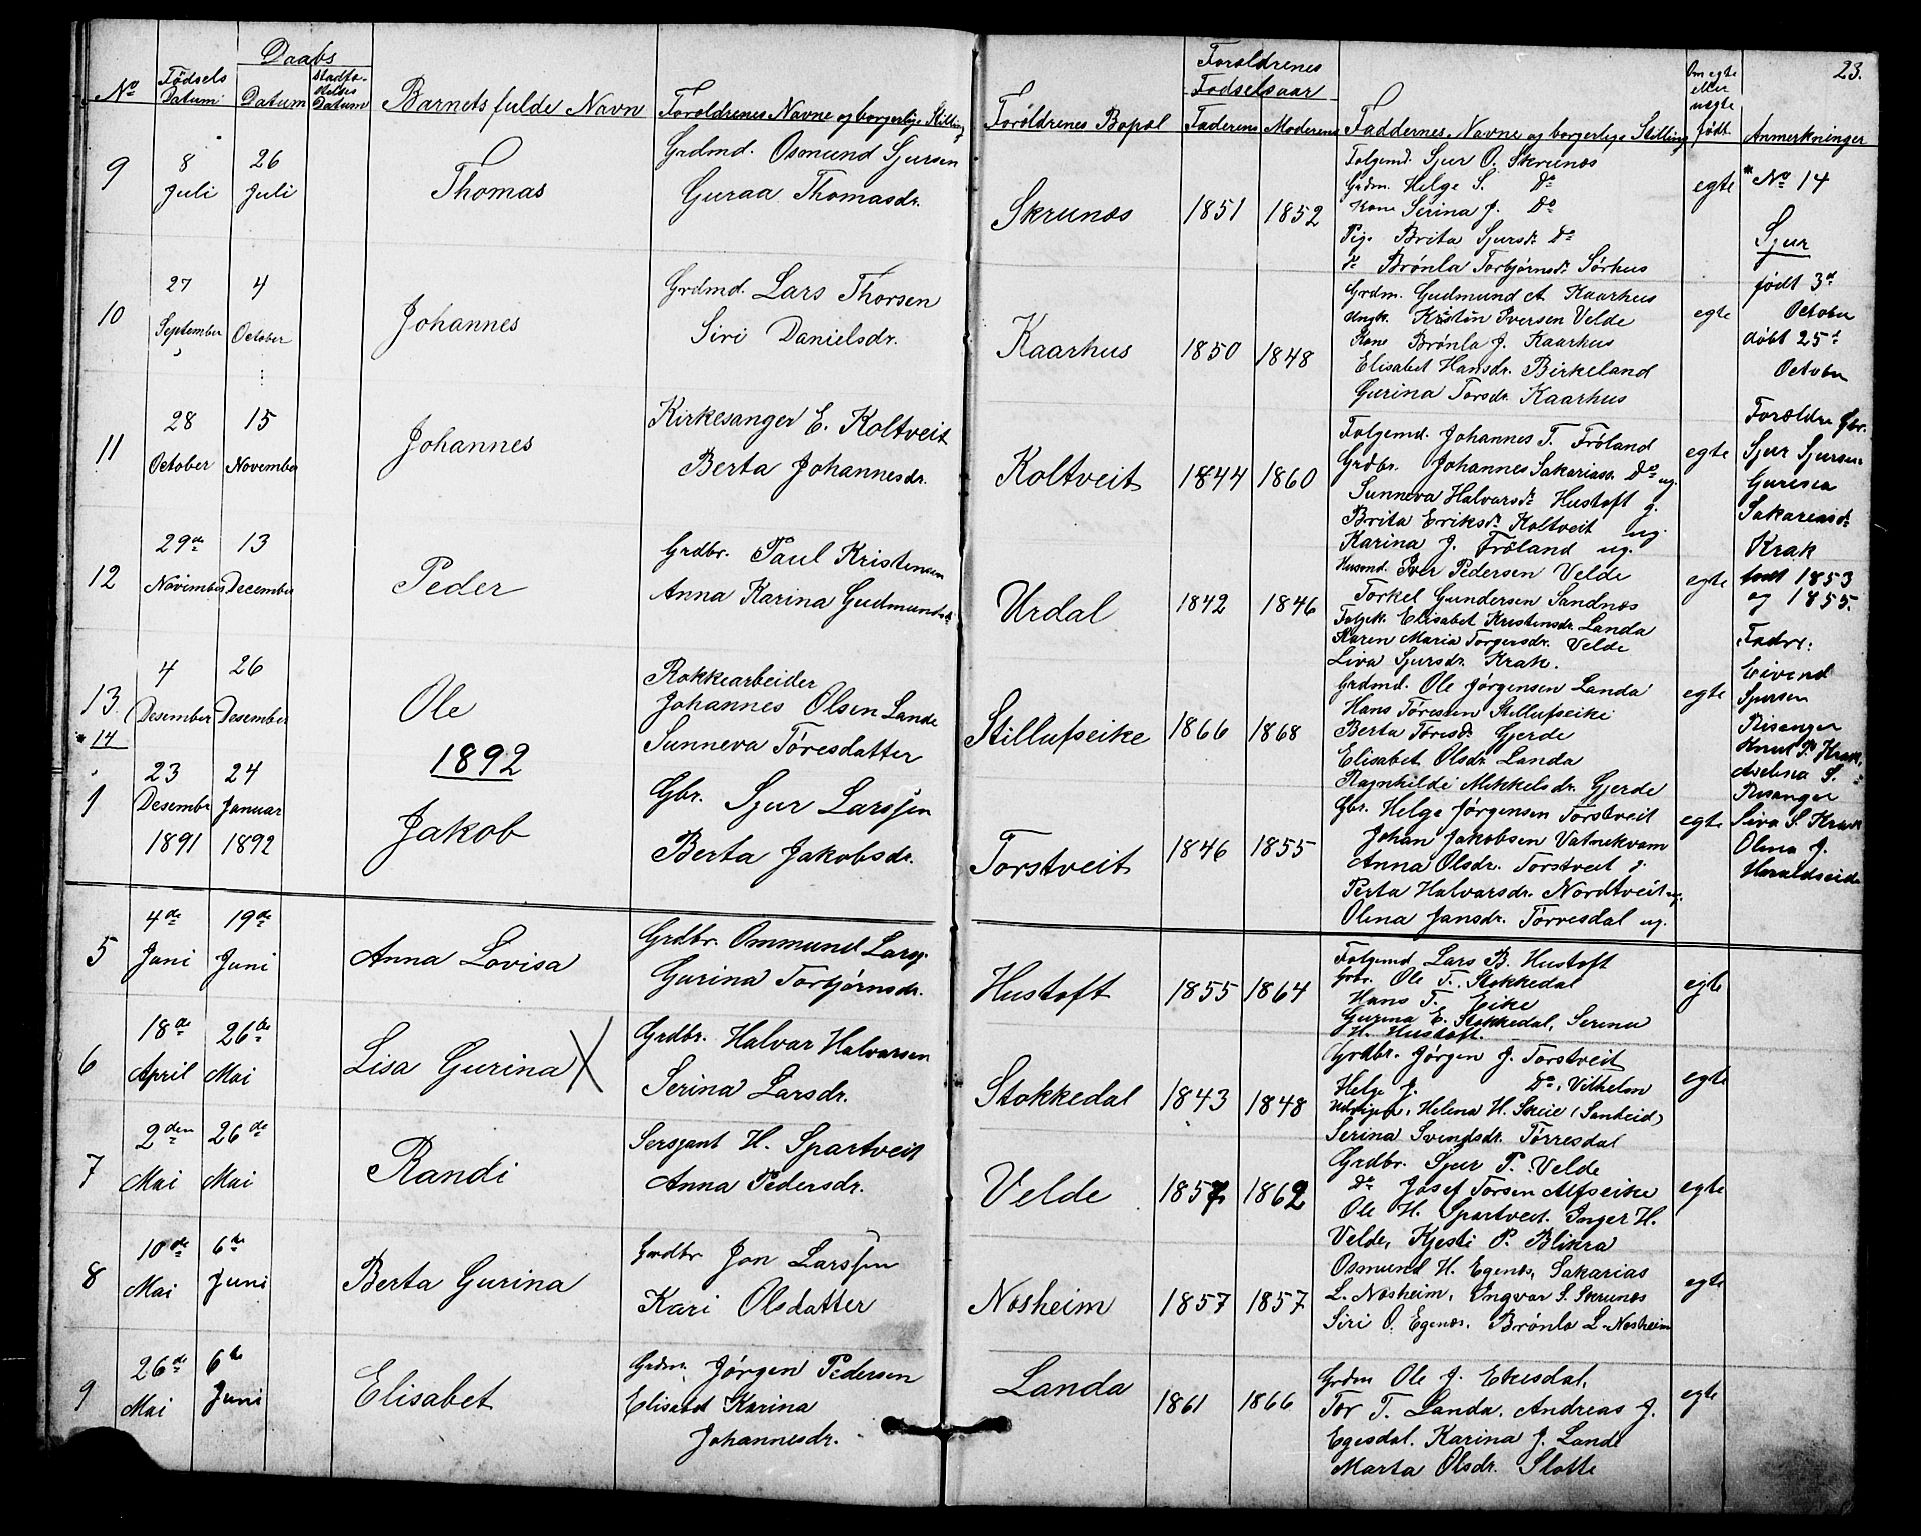 23.
No
Fødsels Datum
Daabs
Datum
Stadfæ-
stelses
Datum
Barnets fulde Navn
Foroldrenes Navne og borgerlige Stilling
Foroldrenes Bopæl
Foroldrenes
Fødselsaar
Faderens
Moderens
Faddernes Navne og borgerlige Stilling
Om egte
eller
uægte
født
Anmerkninger
9
8
Juli
26
Juli
Thomas
Grdmd. Osmund Sjursen
Guraa Thomasdr.
Skrunæs
1851
1852
Folgemd. Sjur O. Skrunæs
Grdm. Helge S. Do
Kone Serina J. Do
Pige Brita Sjursdr Do
do Brønla Torbjørnsdr Sørhus
egte
10
27
September
4
October
Johannes
Grdmd. Lars Thorsen
Siri Danielsdr.
Kaarhus
1850
1848
Grdm. Gudmund A. Kaarhus
Ungk. Kristin Iversen Velde
Kone Brønla J. Kaarhus
Elisabet Hansdr. Birkeland
Gurina Torsdr. Kaarhus
egte
11
28
October
15
November
Johannes
Kirkesanger E. Koltveit
Berta Johannesdr.
Koltveit
1844
1860
Folgemd. Johannes T. Frøland
Grdbr. Johannes Sakariass. Do ug.
Sunneva Halvarsdr Hustoft g.
Brita Eriksdr Koltveit ug.
Karina J. Frøland ug.
egte
12
29de
November
13
December
Peder
Grdbr. Paul Kristensen
Anna Karina Gudmundsdr
Urdal
1842
1846
Husmd. Iver Pedersen Velde
Torkel Gundersen Sandnæs
Folgek. Elisabet Kristensdr. Landa
Karen Maria Torgersdr. Velde
Liva Sjursdr. Krak.
egte
13
* 14
4
Desember
26
Desember
Ole
Rokkearbeider
Johannes Olsen Lande
Sunneva Tøresdatter
Stillufseike
1866
1868
Grdmd. Ole Jørgensen Landa
Hans Tøressen Stillufseike
Berta Tøresdr Gjerde
Elisabet Olsdr Landa
Ragnhilde Mikkelsdr. Gjerde
egte
1892
1
23
Desember
1891
24
Januar
1892
Jakob
Gbr. Sjur Larssen
Berta Jakobsdr.
Torstveit
1846
1855
Gbr. Helge Jørgensen Torstveit
Johan Jakobsen Vatnekvam
Anna Olsdr. Torstveit g.
Berta Halvarsdr. Nordtveit ug.
Olina Jansdr. Tørresdal ug.
egte
* No 14
Sjur
født 3d
October
døbt 25d
October
Forældre Gbr.
Sjur Sjursen
Guresea
Sakariasdr
Krak
født 1853
og 1855.
Fadre:
Eivind
Sjursen
Risanger
Knut P. Krak,
Avelina S.
Risanger
Liva S. Krak
Olina J.
Haraldseid
5
4de
Juni
19de
Juni
Anna Lovisa
Grdbr. Ommund Larss.
Gurina Torbjørnsdr.
Hustoft
1855
1864
Folgemd Lars B. Hustoft
Grbr. Ole T. Stokkedal
Hans T. Eike
Gurina E. Stokkedal, Serina
H. Hustoft.
egte
6
18de
April
26de
Mai
Lisa Gurina X
Grdbr. Halvar Halvarsen
Serina Larsdr.
Stokkedal
1843
1848
Grdbr. Jørgen J. Torstveit
Helge J. Do, Vilhelm
Helena H. Skeie (Sandeid)
Serina Svendsdr. Tørresdal
egte
7
2den
Mai
26de
Mai
Randi
Sersjant H. Spartveit
Anna Pedersdr.
Velde
1857
1862
Grdbr. Sjur P. Velde
Do Josef Torsen Alfseike
Ole H. Spartveit. Inger H.
Velde, Kjesti P. Blikra
egte
8
10de
Mai
6de
Juni
Berta Gurina
Grdbr Jon Larssen
Kari Olsdatter
Næsheim
1857
1857
Osmund H. Egenæs, Sakarias
L. Næsheim, Ingvar S. Skrunæs
Siri O. Egenæs. Brønla L. Næsheim
egte
9
26de
Mai
6de
Juni
Elisabet
Grdm. Jørgen Pedersen
Elisabet Karina
Johannesdr.
Landa
1861
1866
Grdm Ole J. Ekesdal,
Tor T. Landa, Andreas J.
Egesdal. Karina J. Lande
Marta Olsdr. Slotte
egte